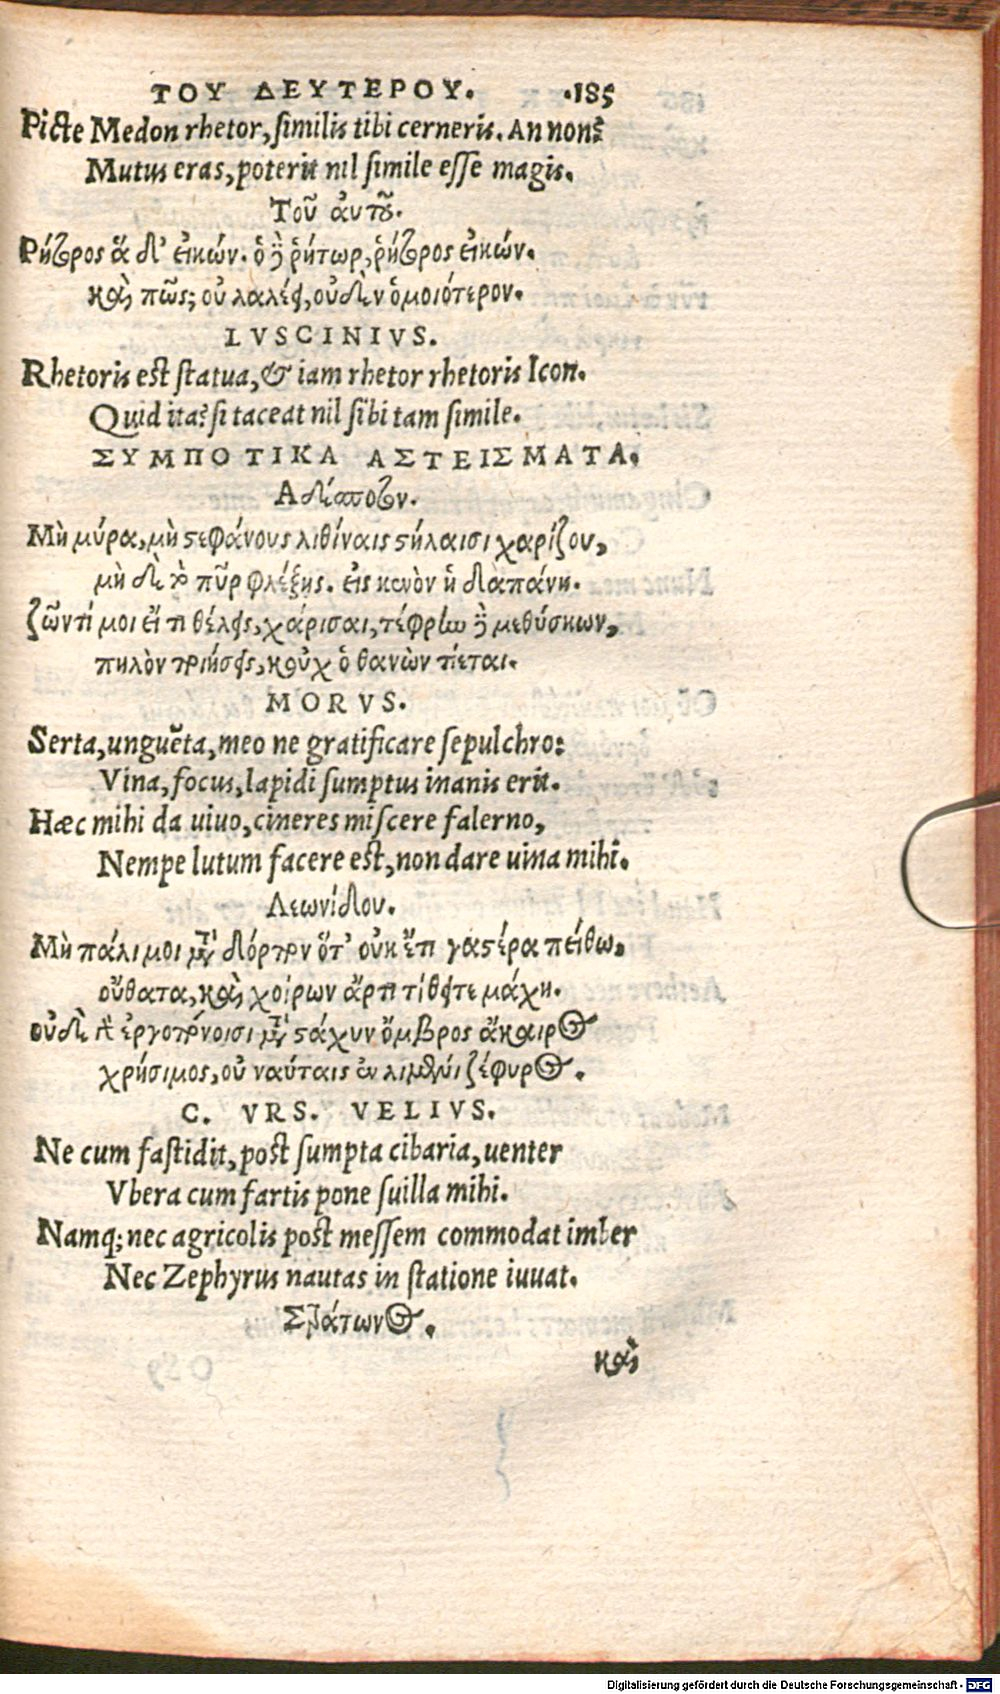 ΤΟΥ ΔΕΥΤΕΡΟΥ. 185
Picte Medon rhetor, similis tibi cerneris. An non?
Mutus eras, poterit nil simile esse magis.
Τοῦ ἀυτοῦ.
Ρήτορος ἅ δ' εἰκών. ὁ δὲ ῥήτωρ, ῥήτορος εἰκών.
καὶ πῶς; οὐ λαλέει, οὐδὲν ὁμοιότερον.
LVSCINIVS.
Rhetoris est statua, & iam rhetor rhetoris Icon.
Quid ita? si taceat nil sibi tam simile.
ΣΥΜΠΟΤΙΚΑ ΑΣΤΕΙΣΜΑΤΑ.
Αδέσποτον.
Μὴ μύρα, μὴ στεφάνους λιθίναις στήλαισι χαρίζου,
μὴ δὲ τὸ πῦρ φλέξῃς. εἰς κενὸν ἡ δαπάνη.
ζῶντί μοι εἴ τι θέλεις, χάρισαι, τέφρην δὲ μεθύσκων,
πηλὸν ποιήσεις, κοὐχ ὁ θανὼν πίεται.
MORVS.
Serta, unguēta, meo ne gratificare sepulchro:
Vina, focus, lapidi sumptus inanis erit.
Hæc mihi da uiuo, cineres miscere falerno,
Nempe lutum facere est, non dare uina mihi.
Λεωνίδου.
Μὴ πάλι μοι μετὰ δόρπον ὅτ' οὐκ ἔτι γαστέρα πείθω,
οὔθατα, καὶ χοίρων ἄρτι τίθειτε μάχη.
οὐδὲ γὰρ ἐργοπόνοισι μετὰ στάχυν ὄμβρος ἄκαιρος
χρήσιμος, οὐ ναύταις ἐν λιμένι ζέφυρος.
C. VRS. VELIVS.
Ne cum fastidit, post sumpta cibaria, uenter
Vbera cum fartis pone suilla mihi.
Namq; nec agricolis post messem commodat imber
Nec Zephyrus nautas in statione iuuat.
Στράτωνος.
καὶ
Digitalisierung gefördert durch die Deutsche Forschungsgemeinschaft - DFG